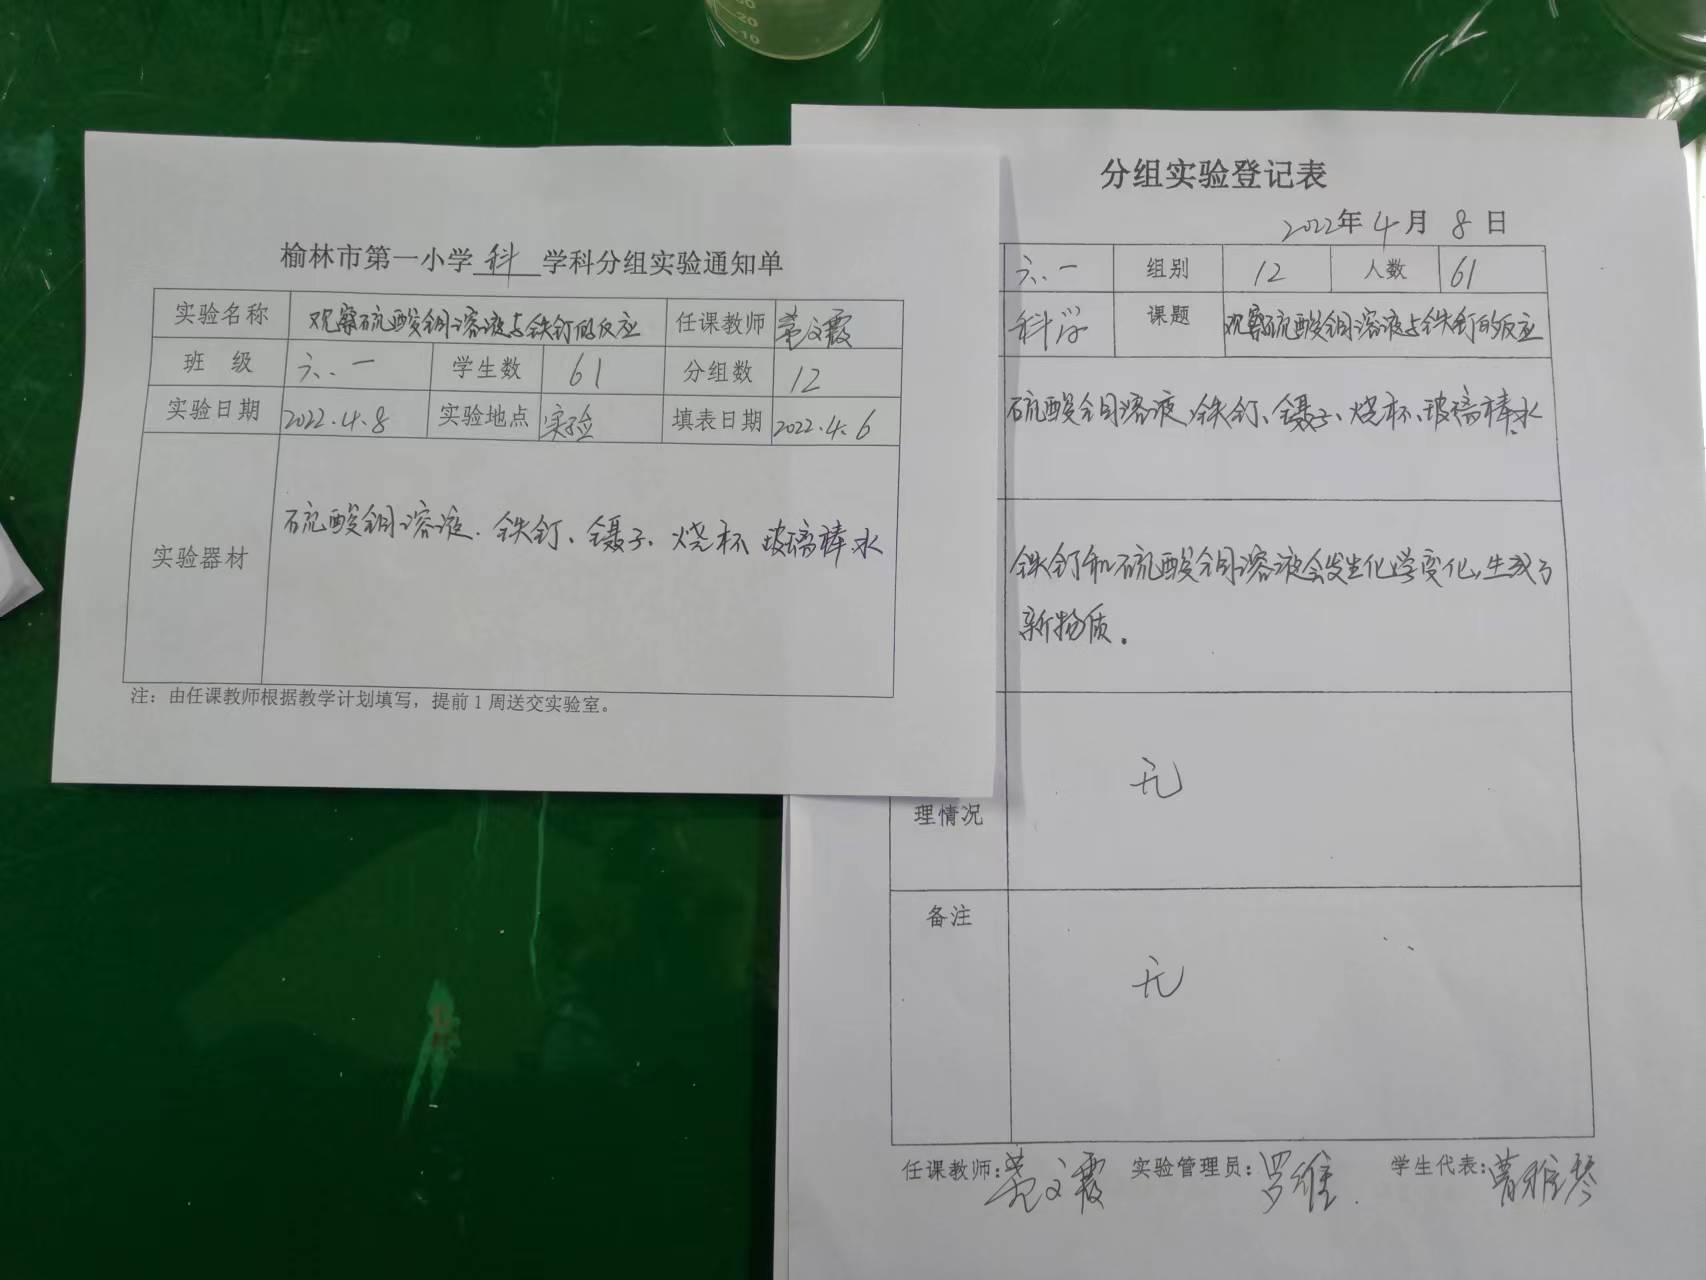 榆林市第一小学 科 学科分组实验通知单
实验名称 观察硫酸铜溶液与铁钉的反应 任课教师 范文霞
班 级 六.一 学生数 61 分组数 12
实验日期 2022.4.8 实验地点 实验 填表日期 2022.4.6
实验器材 硫酸铜溶液、铁钉、镊子、烧杯 玻璃棒、水
注：由任课教师根据教学计划填写，提前1周送交实验室。
分组实验登记表
2022年 4月 8日
六.一 组别 12 人数 61
科学 课题 观察硫酸铜溶液与铁钉的反应
硫酸铜溶液、铁钉、镊子、烧杯、玻璃棒、水
铁钉和硫酸铜溶液会发生化学变化，生成了
新物质.
无
理情况
备注
无
任课教师：范文霞 实验管理员：罗维 学生代表：曹雅琴
10
20